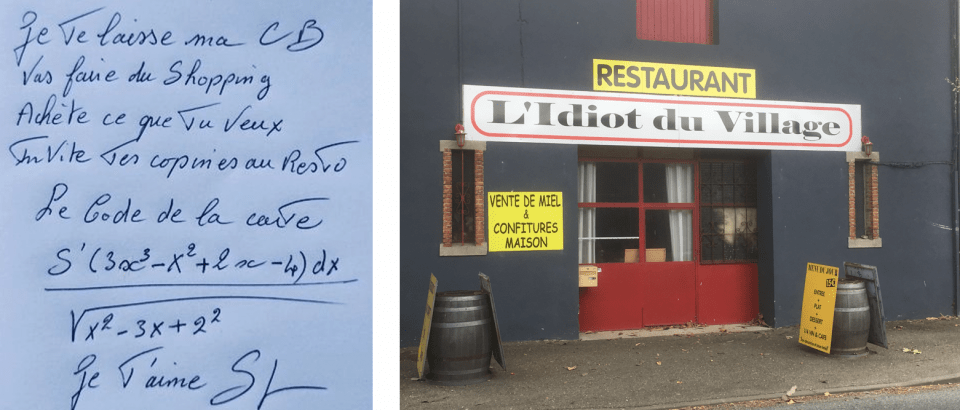 Je Te laisse ma CB
Vas faire du Shopping
Achète ce que Tu Veux
InVite Tes copines au Resto
Le Code de la carte
S'(3x³-x²+2x-4)dx
√x²-3x+2²
Je T'aime
RESTAURANT
L'Idiot du Village
VENTE DE MIEL
&
CONFITURES
MAISON
MENU DU JOUR
15€
ENTREE
+
PLAT
+
DESSERT
+